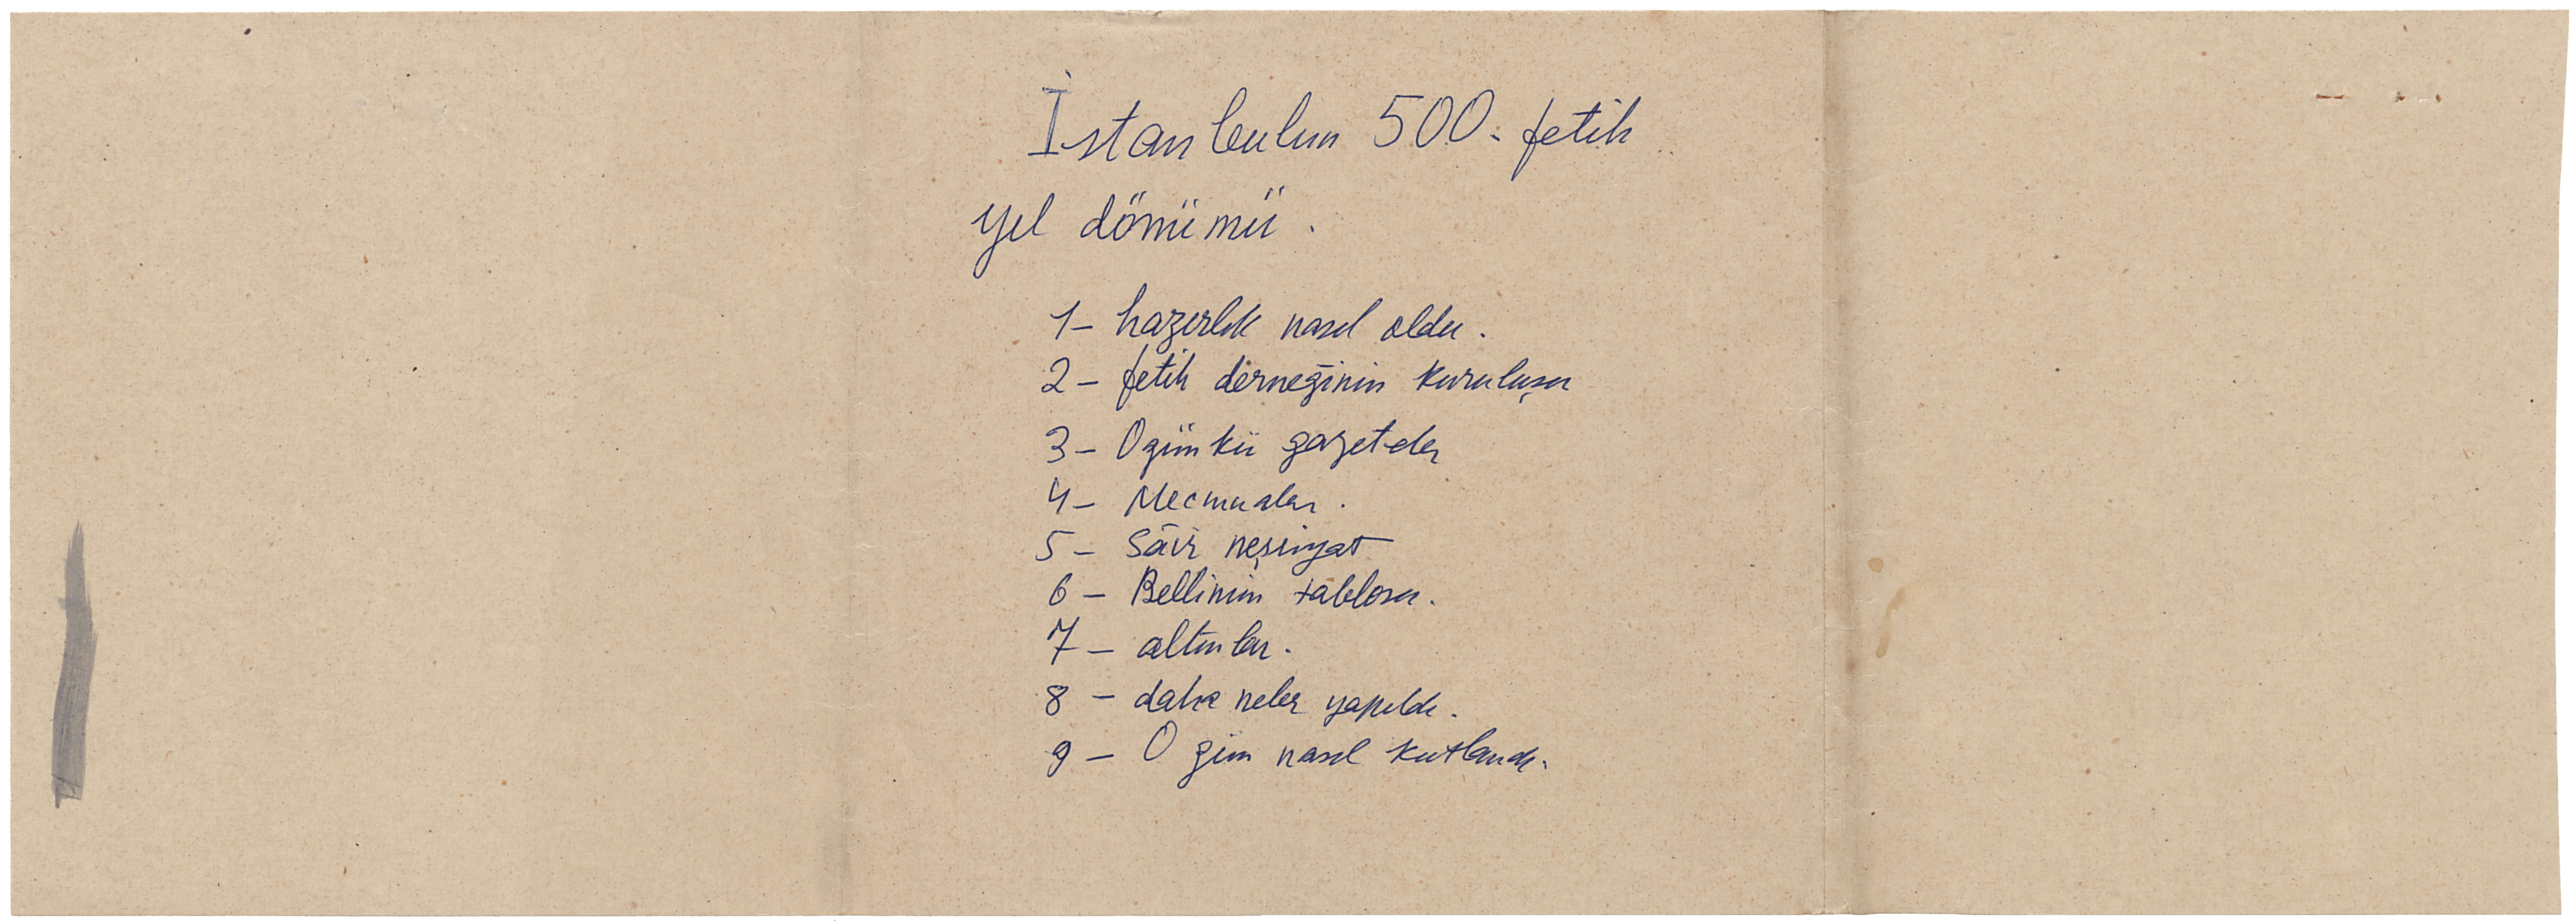 İstanbulun 500. fetih
yıl dönümü.
1- hazırlık nasıl oldu.
2- fetih derneğinin kuruluşu
3- O günkü gazeteler
4- Mecmualar.
5- Sâir neşriyat
6- Bellinin tablosu.
7- altınlar.
8- daha neler yapıldı.
9- O gün nasıl kutlandı.